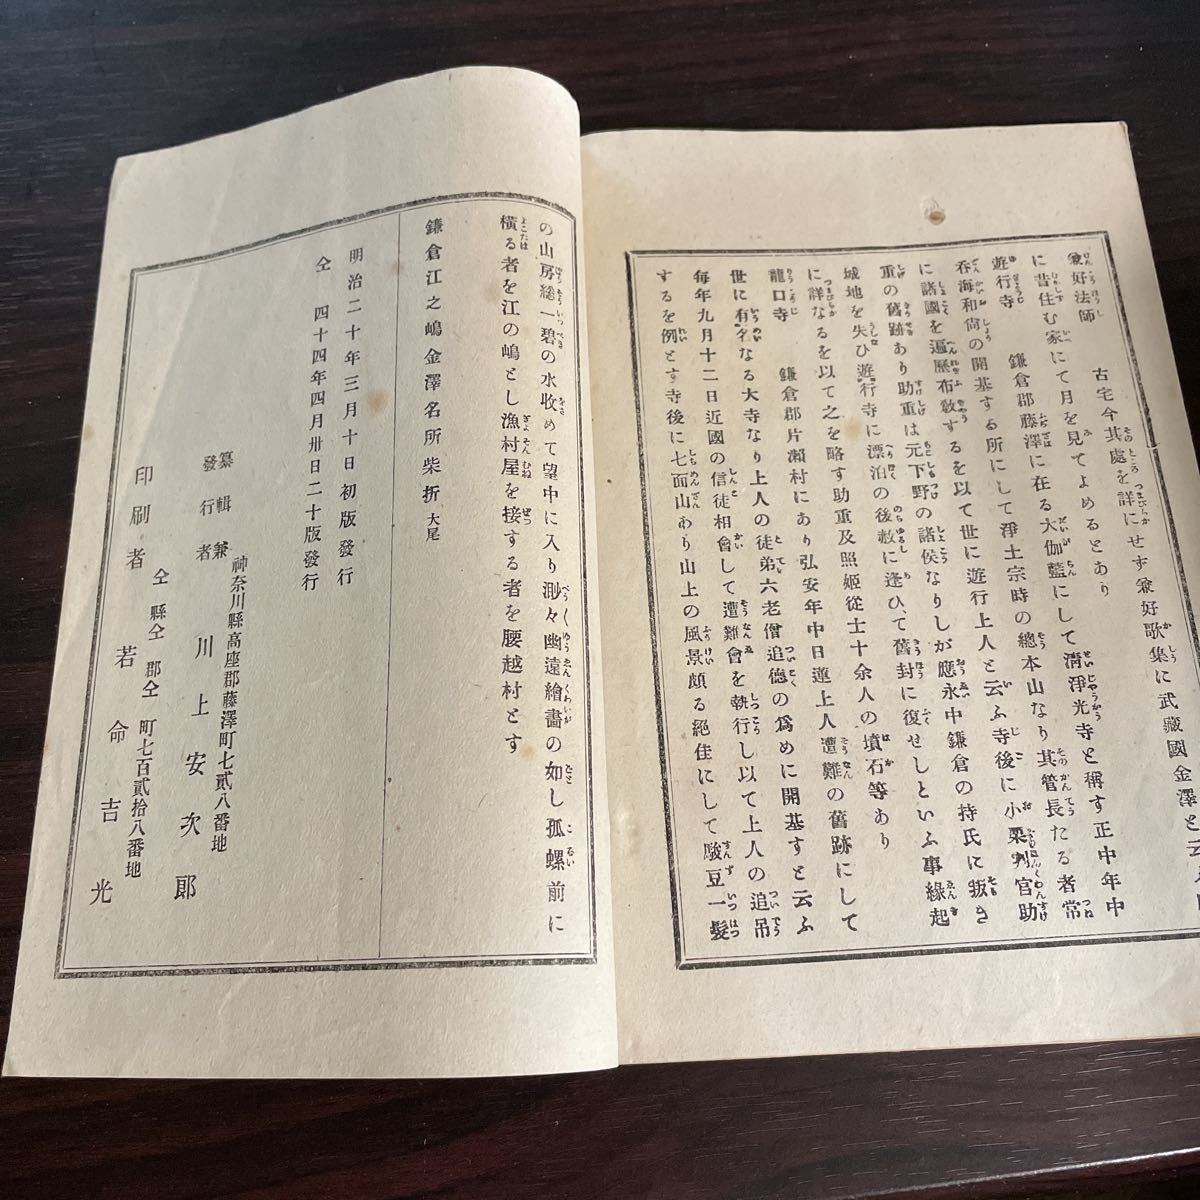 兼好法師　古宅今其處を詳にせず兼好歌集に武藏國金澤と云
に昔住む家にて月を見てよめるとあり
遊行寺　鎌倉郡藤澤に在る大伽藍にして淸淨光寺と稱す正中年中
呑海和尙の開基する所にして淨土宗時の總本山なり其管長たる者常
に諸國を遍歷布敎するを以て世に遊行上人と云ふ寺後に小栗判官助
重の舊跡あり助重は元下野の諸侯なりしが應永中鎌倉の持氏に叛き
城地を失ひ遊行寺に漂泊の後赦に逢ひて舊封に復せしといふ事緣起
に詳なるを以て之を略す助重及照姬從士十余人の墳石等あり
龍口寺　鎌倉郡片瀨村にあり弘安年中日蓮上人遭難の舊跡にして
世に有名なる大寺なり上人の徒弟六老僧追德の爲めに開基すと云ふ
每年九月十二日近國の信徒相會して遭難會を執行し以て上人の追吊
するを例とす寺後に七面山あり山上の風景頗る絕佳にして駿豆一髮
の山房總一碧の水收めて望中に入り渺々幽遠繪畫の如し孤螺前に
橫る者を江の嶋とし漁村屋を接する者を腰越村とす
鎌倉江之嶋金澤名所柴折大尾
明治二十年三月十日初版發行
仝　四十四年四月卅日二十版發行
神奈川縣高座郡藤澤町七貳八番地
纂輯兼
發行者　川上安次郞
仝縣仝郡仝町七百貳拾八番地
印刷者　若命吉光